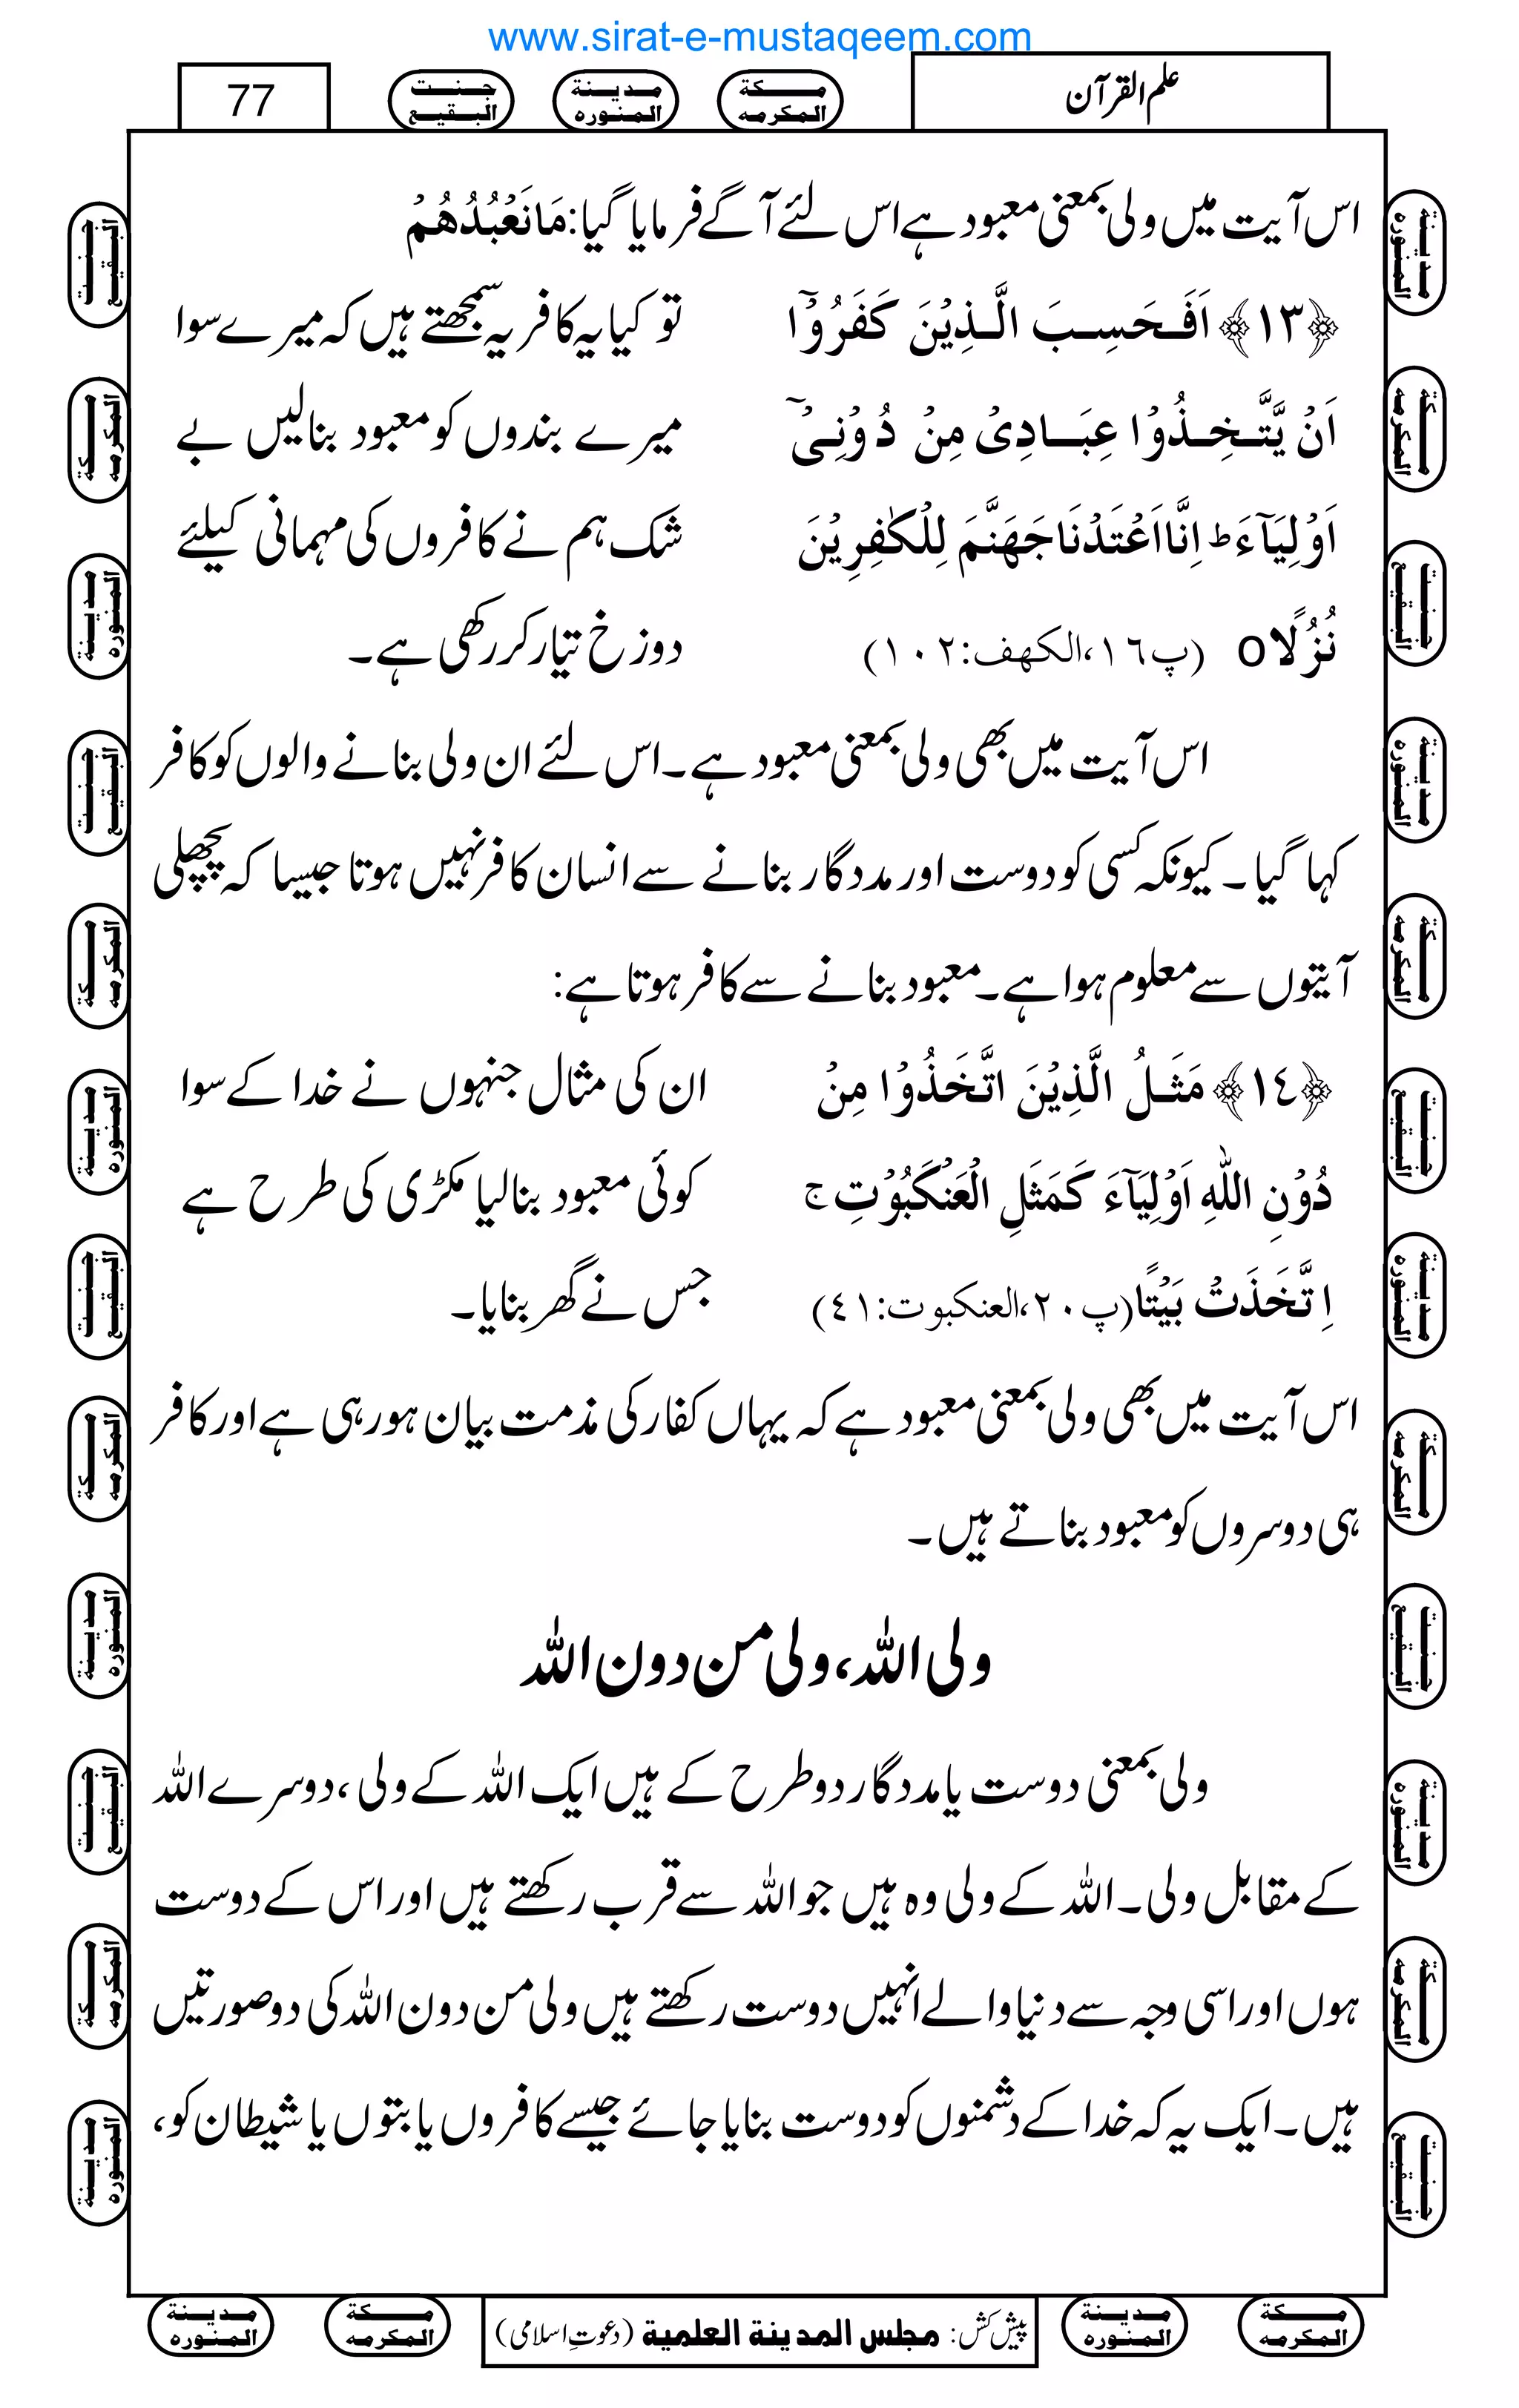 www.sirat-e-mustaqeem.com
علم القرآن
مكة المكرمه
مدينة المنوره
جنت البقيع
77
اس آیت میں ولی بمعنی معبود ہے اس لئے آگے فرمایا گیا: مَانَعْبُدُهُمْ
﴿١٣﴾ اَفَحَسِبَ الَّذِيْنَ كَفَرُوْٓا
تو کیا یہ کافر یہ سمجھتے ہیں کہ میرے سوا
اَنْ يَّتَّخِذُوْا عِبَادِىْ مِنْ دُوْنِىْٓ
میرے بندوں کو معبود بنالیں بے
اَوْلِيَآءَ ط اِنَّااَعْتَدْنَاجَهَنَّمَ لِلْكٰفِرِيْنَ
شک ہم نے کافروں کی مہمانی کیلئے
نُزُلًا O (پ١٦،الكهف:١٠٢)
دوزخ تیار کر رکھی ہے۔
اس آیت میں بھی ولی بمعنی معبود ہے۔ اس لئے ان ولی بنانے والوں کو کافر
کہا گیا۔ کیونکہ کسی کو دوست اور مددگار بنانے سے انسان کافر نہیں ہوتا جیسا کہ پچھلی
آیتوں سے معلوم ہوا ہے۔ معبود بنانے سے کافر ہوتا ہے:
﴿١٤﴾ مَثَلُ الَّذِيْنَ اتَّخَذُوْا مِنْ
ان کی مثال جنہوں نے خدا کے سوا
دُوْنِ اللهِ اَوْلِيَآءَ كَمَثَلِ الْعَنْكَبُوْتِ ج
کوئی معبود بنالیا مکڑی کی طرح ہے
اِتَّخَذَتْ بَيْتًا (پ٢٠،العنكبوت:٤١)
جس نے گھر بنایا۔
اس آیت میں بھی ولی بمعنی معبود ہے کہ یہاں کفار کی مذمت بیان ہو رہی ہے اور کافر
ہی دوسروں کو معبود بناتے ہیں۔
ولی اللہ، ولی من دون اللہ
ولی بمعنی دوست یا مددگار دو طرح کے ہیں ایک اللہ کے ولی، دوسرے اللہ
کے مقابل ولی۔ اللہ کے ولی وہ ہیں جو اللہ سے قرب رکھتے ہیں اور اس کے دوست
ہوں اور اسی وجہ سے دنیا والے انہیں دوست رکھتے ہیں ولی من دون اللہ کی دو صورتیں
ہیں۔ ایک یہ کہ خدا کے دشمنوں کو دوست بنایا جائے جیسے کافروں یا بتوں یا شیطان کو،
مكة المكرمه
مدينة المنوره
پیش کش: مجلس المدينة العلمية (دعوتِ اسلامی)
مكة المكرمه
مدينة المنوره